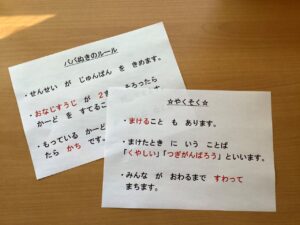 ババぬきのルール
・せんせい が じゅんばん を きめます。
・おなじすうじ が 2 そろったら
かーど を すてること
・もっている かーど
たら かち です。
☆やくそく☆
・まけること も あります。
・まけたとき に いう ことば
「くやしい」「つぎがんばろう」といいます。
・みんな が おわるまで すわって
まちます。